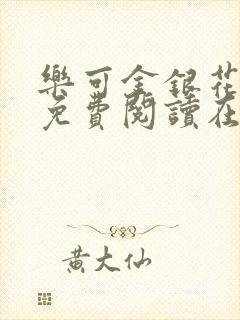 樂可金銀花
免費閱讀在
黃大仙